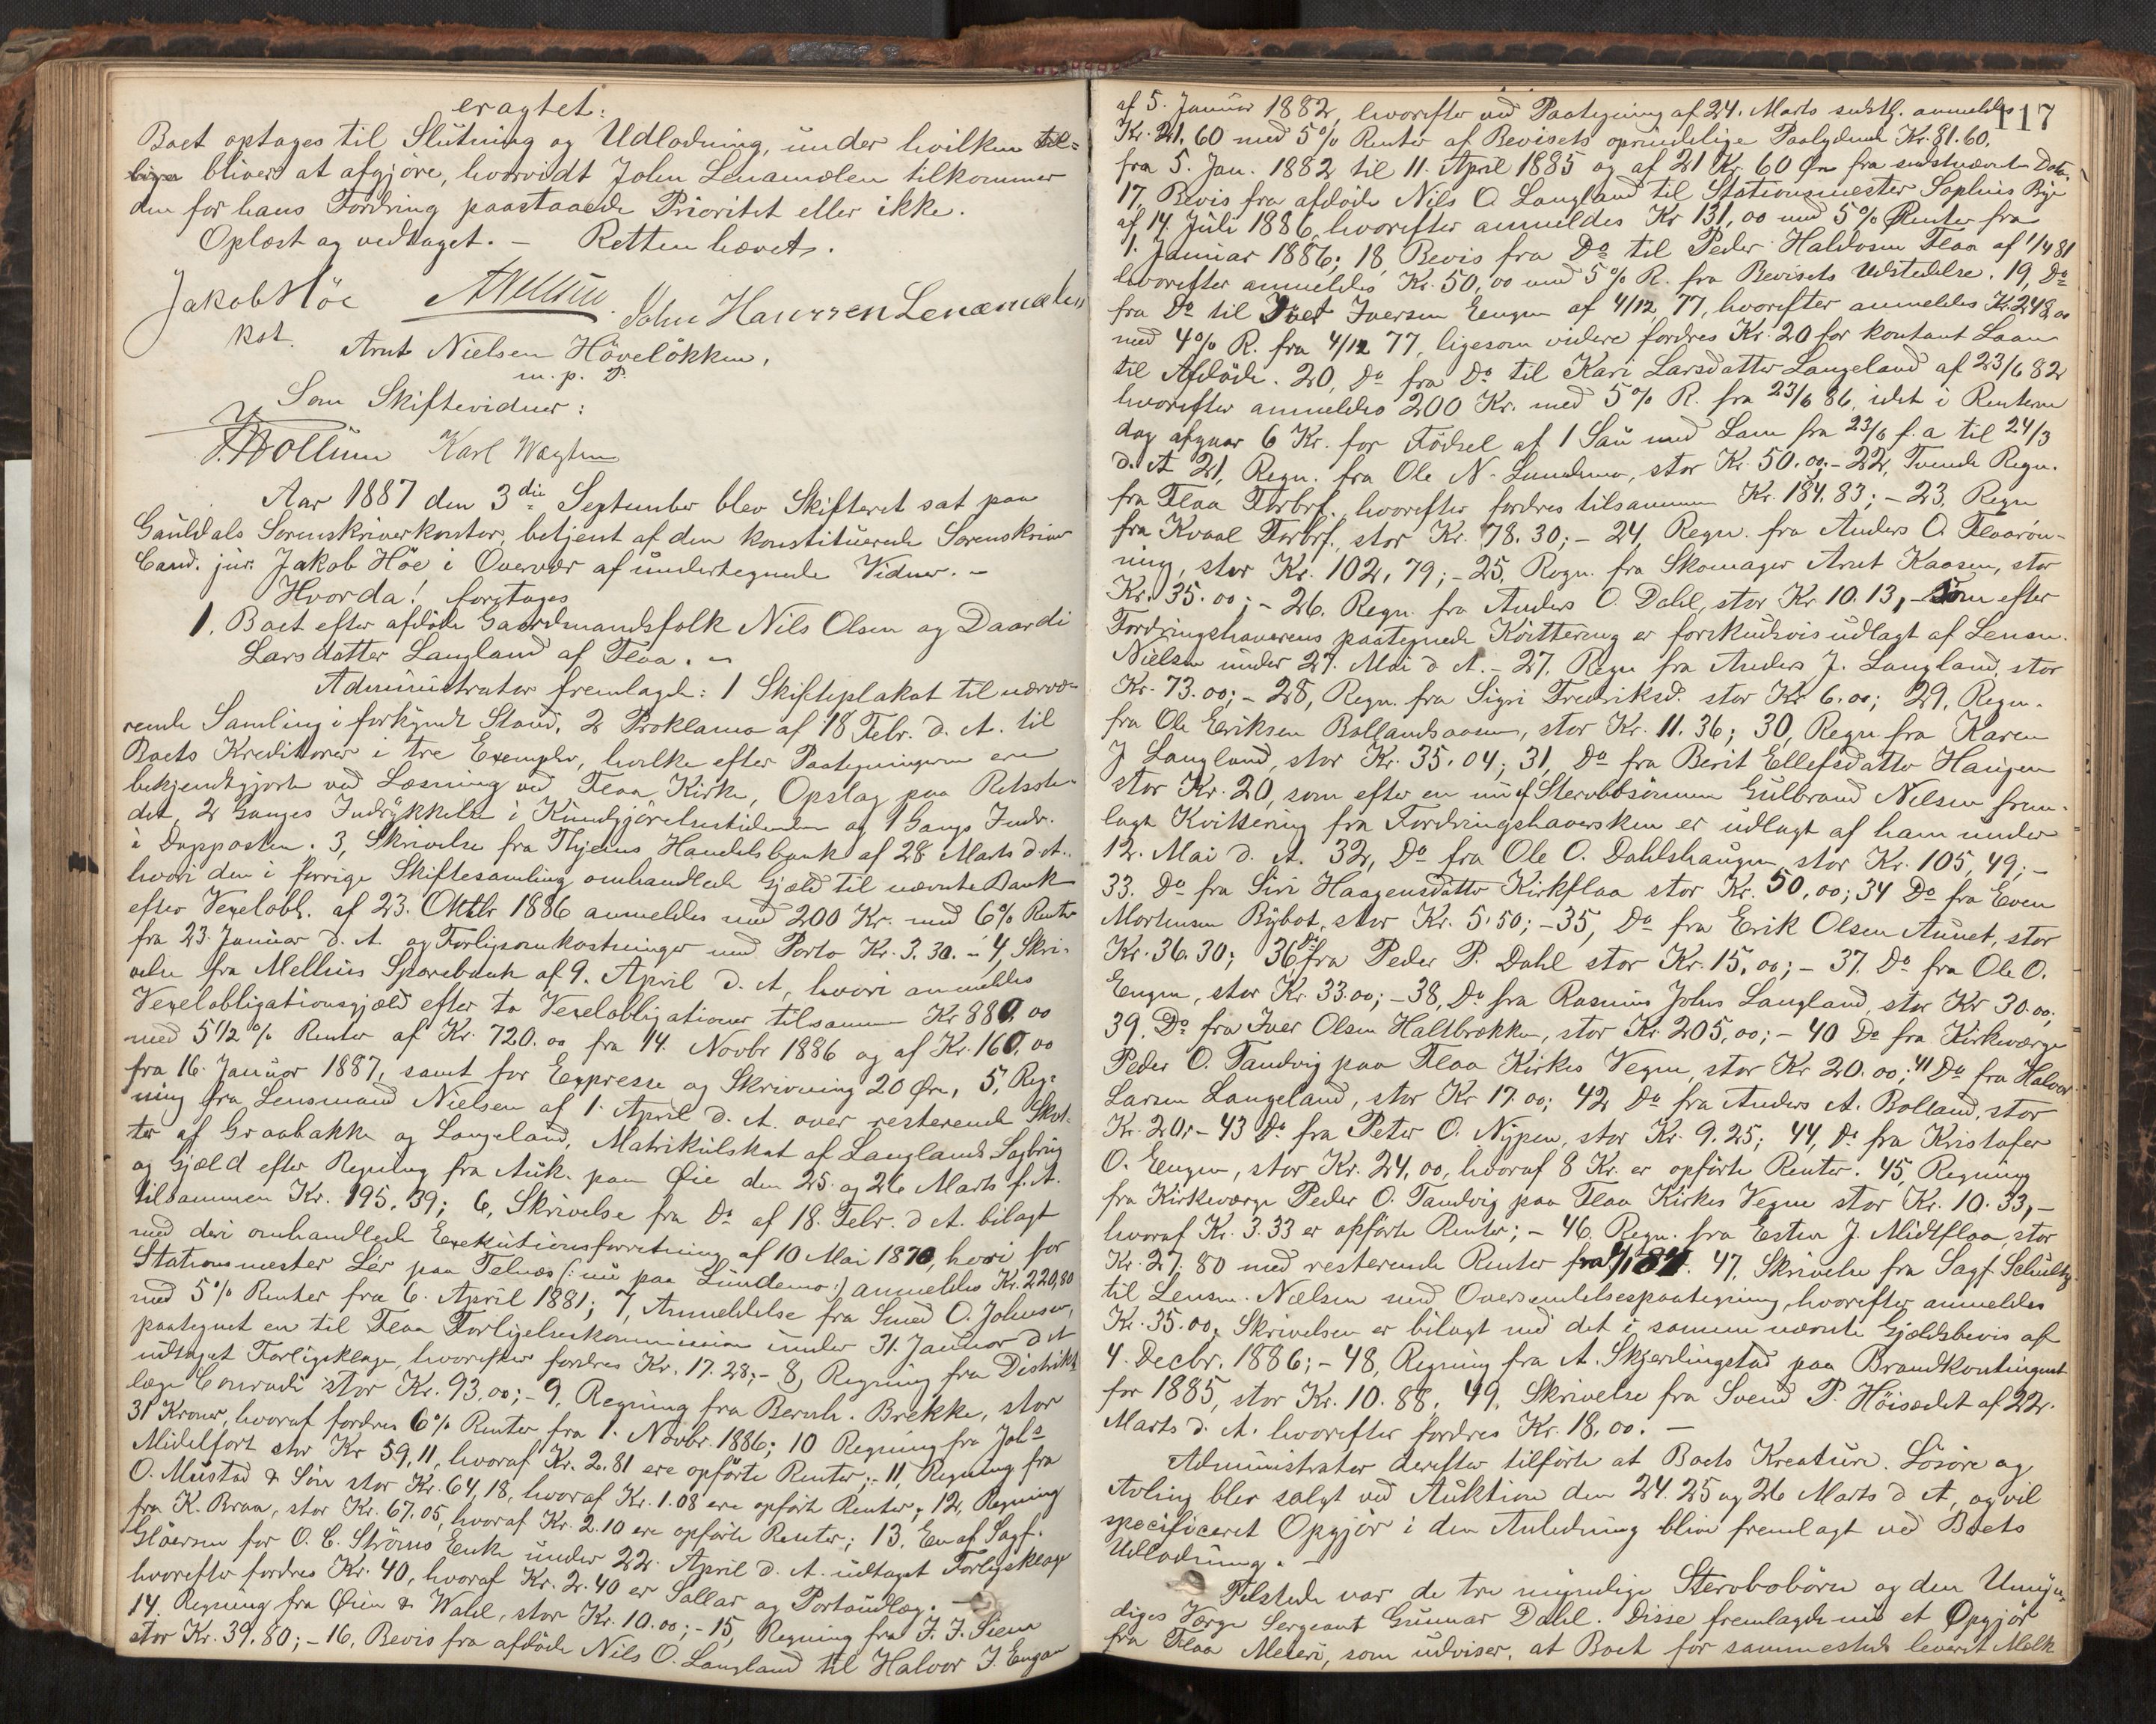 eragtet:
Boet optages til Slutning og Udlodning, under hvilken
bliver at afgjøre, hvorvidt John Lenæmælen tilkommer
den for hans Fordring paastaaede Prioritet eller ikke.
Oplæst og vedtaget. – Retten hævet.
Jakob Höe
John Hanssen Lenæmælen
kst.
Arnt Nielsen Hövelökken,
m. p. P.
Som Skiftevidner:
Karl
Aar 1887 den 3die September blev Skifteret sat paa
Gauldals Sorenskriverkontor, betjent af den konstituerede Sorenskriver
Cand. jur. Jakob Höe i Overvær af undertegnede Vidner. –
Hvorda! foretages
1. Boet efter afdøde Gaardmandsfolk Nils Olsen og Daardi
Larsdatter Langland af Flaa. –
Administrator fremlagde: 1 Skifteplakat til nærvæ-
rende Samling i forkyndt Stand, 2 Proklama af 18 Febr. d. A. til
Boets Kreditorer i tre Exempler, hvilke efter Paategningerne ere
bekjendtgjorte ved Læsning ved Flaa Kirke, Opslag paa Retsste-
det, 2 Ganges Indrykkelse i Kundgjörelsestidenden og 1 Gangs Indr.
i Dagposten. 3, Skrivelse fra Thjems Handelsbank af 28 Marts d. A.
hvori den i forrige Skiftesamling omhandlede Gjæld til nævnte Bank
efter Vexelobl. af 23. Oktbr 1886 anmeldes med 200 Kr. med 6% Renter
fra 23. Januar d. A. og Forligsomkostninger med Porto Kr. 3.30. – 4, Skri-
velse fra Melhus Sparebank af 9. April d. A, hvori anmeldes
Vexelobligationsgjæld efter to Vexelobligationer tilsammen Kr 880,00
med 5 1/2 % Renter af Kr. 720.00 fra 14. Novbr 1886 og af Kr. 160,00
fra 16. Januar 1887, samt for Expresse og Skrivning 20 Øre, 5, Reg-
ning fra Lensmand Nielsen af 1. April d. A. over resterende Skat-
ter af Graabakke og Langeland, Matrikulskat af Langlands Sagbrug
og Gjæld efter Regning fra Auk. paa Øie den 25. og 26 Marts f. A.
tilsammen Kr. 195.39; 6, Skrivelse fra Do af 18. Febr. d A. bilagt
med deri omhandlede Exekutionsforretning af 10 Mai 1870, hvori for
Stationsmester Lér paa Telnæs (: nu paa Lundemo:) anmeldes Kr. 220,80
med 5% Renter fra 6. April 1881; 7, Anmeldelse fra Smed O. Johnsen,
paategnet en til Flaa Forligelseskommission under 31. Januar d A
udtaget Forligsklage, hvorefter fordres Kr. 17.28; – 8, Regning fra Distrikts
læge Conradi stor Kr. 93.00; – 9, Regning fra Bernh. Brekke, stor
31 Kroner, hvoraf fordres 6% Renter fra 1. Novbr. 1886; 10 Regning fra Johs
Midelfort stor Kr 59,11, hvoraf Kr. 2.81 ere opförte Renter; – 11, Regning fra
O. Mustad & Sön stor Kr. 64,18, hvoraf Kr. 1.08 ere opført Renter; 12, Regning
fra K. Braa, stor Kr. 67.05, hvoraf Kr. 2.10 ere opførte Renter; 13. En af Sagf.
Gløersen for O. C. Ströms Enke under 22. April d. A. udtaget Forligsklage
hvorefter fordres Kr. 40, hvoraf Kr. 2.40 er Sallær og Portoudlæg. –
14. Regning fra Øien & Wahl, stor Kr. 10.00; – 15, Regning fra J. J. Siem
stor Kr. 39.80; – 16, Bevis fra afdøde Nils O. Langland til Halvor J. Engan
117
af 5. Januar 1882, hvorefter ved Paategning af 24. Marts sidstl. anmeldes
Kr. 21.60 med 5% Renter af Bevisets oprindelige Paalydende Kr. 81.60.
fra 5. Jan. 1882 til 11. April 1885 og af 21 Kr. 60 Øre fra sidstnævnte Dato.
17, Bevis fra afdøde Nils O. Langland til Stationsmester Sophus Bye
af 14. Juli 1886, hvorefter anmeldes Kr 131,00 med 5% Renter fra
1. Januar 1886; 18, Bevis fra Do til Peder Haldosen Flaa af 1/4 81
hvorefter anmeldes Kr. 50,00 med 5% R. fra Bevisets Udstedelse. 19, Do
fra Do til Iver Iversen Engen af 4/12 77, hvorefter anmeldes Kr. 248,00
med 4% R. fra 4/12 77, ligesom videre fordres Kr. 20 for kontant Laan
til Afdøde. 20, Do fra Do til Kari Larsdatter Langeland af 23/6 82
hvorefter anmeldes 200 Kr. med 5% R. fra 23/6 86, idet i Renterne
dog afgaar 6 Kr. for Födsel af 1 Sau med Lam fra 23/6 f. a til 24/3
d. A 21, Regn. fra Ole N. Lundemo, stor Kr. 50.00; – 22, Tvende Regn.
fra Flaa Forbrf., hvorefter fordres tilsammen Kr. 184.83; – 23, Regn
fra Kvaal Forbrf., stor Kr. 78.30; – 24, Regn. fra Anders O. Flaarön-
ning, stor Kr. 102,79; – 25, Regn. fra Skomager Arnt Kaasen, stor
Kr. 35.00; – 26. Regn. fra Anders O. Dahl, stor Kr 10.13, – Som efter
Fordringshaverens paategnede Kvittering er forskudsvis udlagt af Lensm.
Nielsen under 27. Mai d A. – 27, Regn fra Anders J. Langland, stor
Kr. 73.00; – 28, Regn. fra Sigri Fredriksd. stor Kr 6.00; 29, Regn.
fra Ole Eriksen Bollandsaasen, stor Kr. 11.36; 30, Regn fra Karen
J Langland, stor Kr. 35.04; 31, Do fra Berit Ellefsdatter Haugen
stor Kr. 20, som efter en nu af Stervbosönnen Gulbrand Nilsen frem-
lagt Kvittering fra Fordringshaversken er udlagt af ham under
12. Mai d. A. 32, Do fra Ole O. Dahlshaugen, stor Kr. 105,49; –
33. Do fra Siri Haagensdatter Kirkflaa stor Kr. 50,00; 34 Do fra Even
Mortensen Rybot, stor Kr. 5.50; – 35, Do fra Erik Olsen Aunet, stor
Kr. 36.30; 36 Do fra Peder P. Dahl stor Kr. 15,00; – 37. Do fra Ole O.
Engen, stor Kr 33.00; – 38, Do fra Rasmus Johns Langland, stor Kr 30.00;
39. Do fra Iver Olsen Haltbrækken, stor Kr. 205,00; – 40 Do fra Kirkeværge
Peder O. Tandvig paa Flaa Kirkes Vegne, stor Kr 20.00; 41 Do fra Halvor
Larsen Langeland, stor Kr 17.00; 42, Do fra Anders A. Bolland, stor
Kr. 20, – 43 Do fra Peter O. Nypen, stor Kr. 9.25; 44, Do fra Kristofer
O. Engen, stor Kr. 24,00, hvoraf 8 Kr. er opförte Renter. 45, Regning
fra Kirkeværge Peder O. Tandvig paa Flaa Kirkes Vegne stor Kr. 10.33, –
hvoraf Kr. 3.33 er opförte Renter; – 46, Regn. fra Esten J. Midtflaa, stor
Kr. 27.80 med resterende Renter fra 47, Skrivelse fra Sagf. Schultz
til Lensm. Nielsen med Oversendelsespaategning, hvorefter anmeldes
Kr. 35.00, Skrivelsen er bilagt med det i samme nævnte Gjældsbevis af
4. Decbr. 1886; – 48, Regning fra A. Skjerdingstad paa Brandkontingent
for 1885, stor Kr. 10.88. 49, Skrivelse fra Svend P. Höisædet af 22.
Marts d. A. hvorefter fordres Kr. 18,00. –
Administrator derefter tilførte at Boets Kreature. Lösöre og
Avling blev solgt ved Auktion den 24. 25 og 26 Marts d A, og vil
specificeret Opgjör i den Anledning blive fremlagt ved Boets
Udlodning. –
Tilstede var de tre myndige Stervbobörn og den Umyn-
diges Værge Sergeant Gunnar Dahl. Disse fremlagde nu et Opgjör
fra Flaa Meieri, som udviser, at Boet for sammesteds leveret Melk